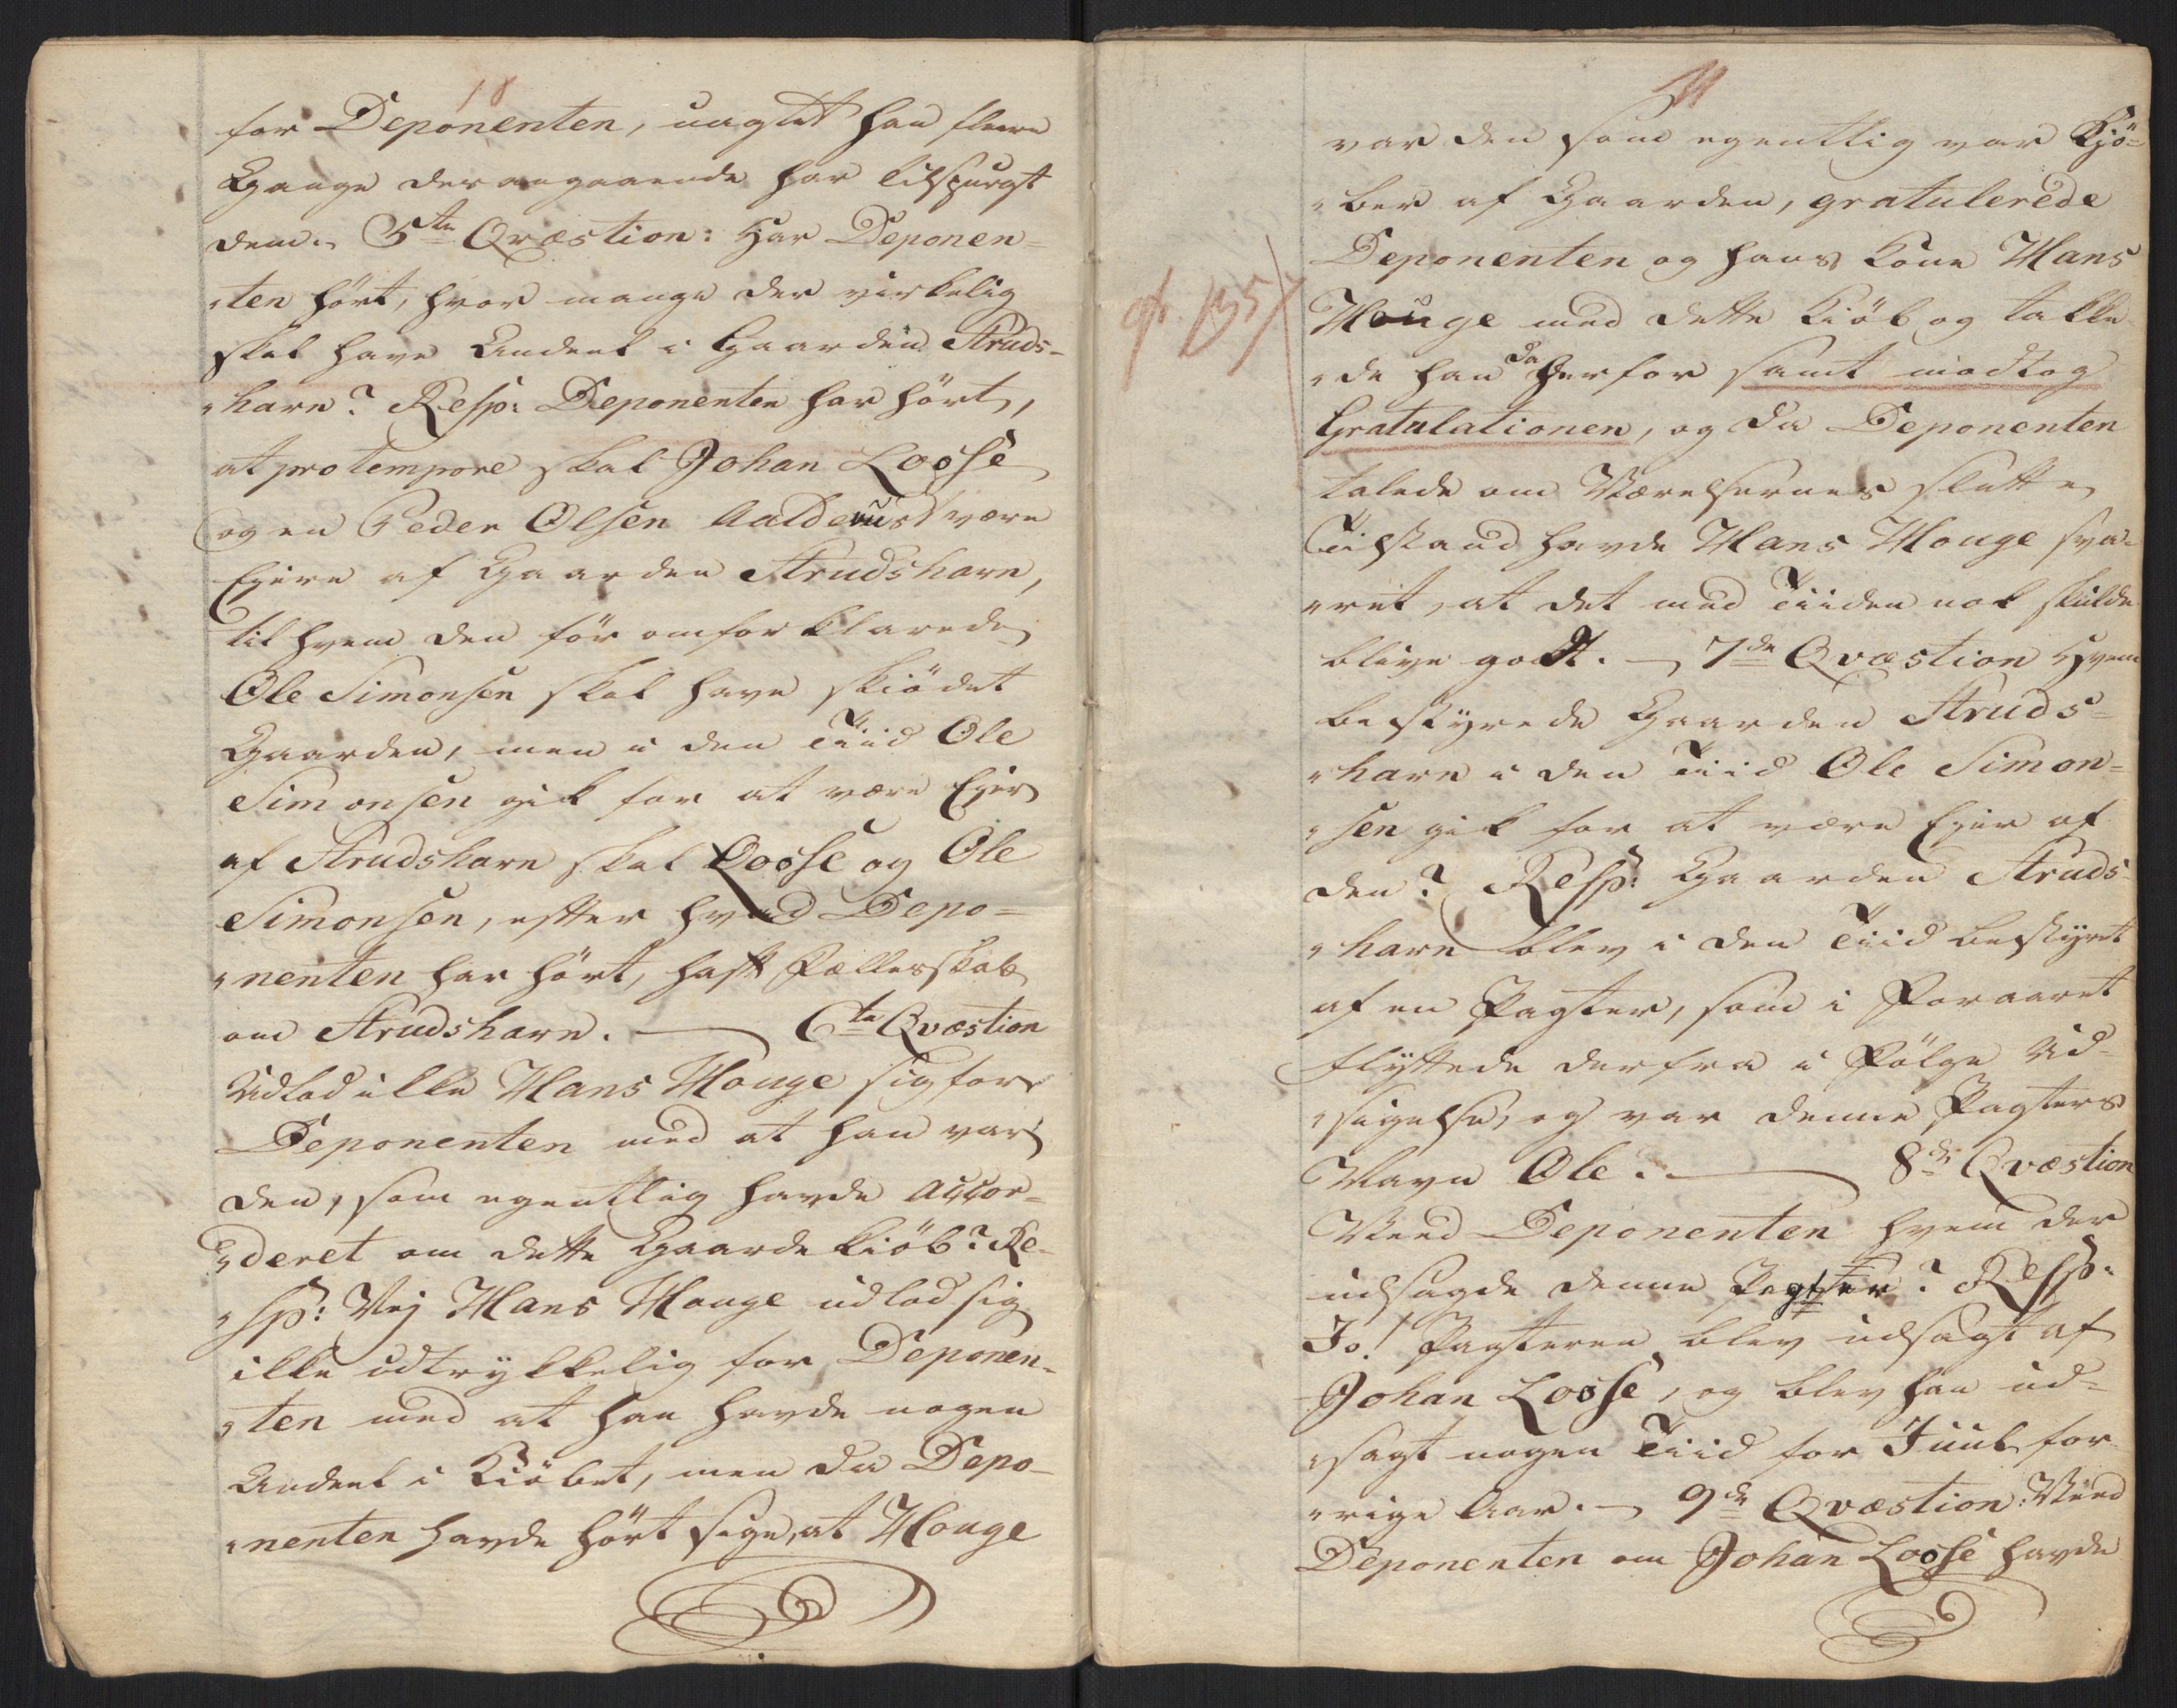 18
for Deponenten, uagtet han fleere
Gange derangaaende har tilspurgt
dem. 5te Qvæstion: Har Deponen=
"ten hørt, hvor mange der virkelig
skal have Andeel i Gaarden Struds-
"harn? Resp: Deponenten har hørt,
at pro tempore skal Johan Loose
og en Peder Olsen Aalderust være
Ejere af Gaarden Strudsharn,
til hvem den før omforklarede
Ole Simonsen skal have skiödet
Gaarden, men i den Tiid Ole
Simonsen gik for at være Ejer
af Strudsharn skal Loose og Ole
Simonsen, efter hvad Depo=
"nenten har hørt, haft Fælleskab
om Strudsharn. — 6te Qvæstion
Udlod ikke Hans Mouge sig for
Deponenten med at han var
den, som egentlig havde accor=
"deret om dette Gaarde kiöb? Re-
"sp: Nej Hans Mouge udlod sig
ikke udtrykkelig for Deponen-
"ten med at han havde nogen
Andeel i Kiöbet, men da Depo-
"nenten havde hørt sige, at Mouge
11
var den som egentlig var Kjö=
"ber af Gaarden, gratulerede
Deponenten og hans Kone Hans
Mouge med dette Kiöb og takke-
"de han da herfor samt modtog
Gratulationen, og da Deponenten
talede om Værelsernes slette
Tilstand havde Hans Mouge sva-
"ret, at det med Tiiden nok skulde
blive godt. — 7de Qvæstion Hvem
bestyrede Gaarden Struds=
"harn i den Tiid Ole Simon=
"sen gik for at være Ejer af
den? Resp: Gaarden Struds-
"harn blev i den Tiid bestyret
af en Pagter, som i Foraaret
flyttede derfra i Følge Ud-
"sigelse, og var denne Pagters
Navn Ole. — 8de Qvæstion
Veed Deponenten hvem der
udsagde denne Pagter? Resp:
Jo! Pagteren blev udsagt af
Johan Loose, og blev han ud=
"sagt nogen Tiid for Juul for-
"rige Aar. — 9de Qvæstion: Veed
Deponenten om Johan Loose havde